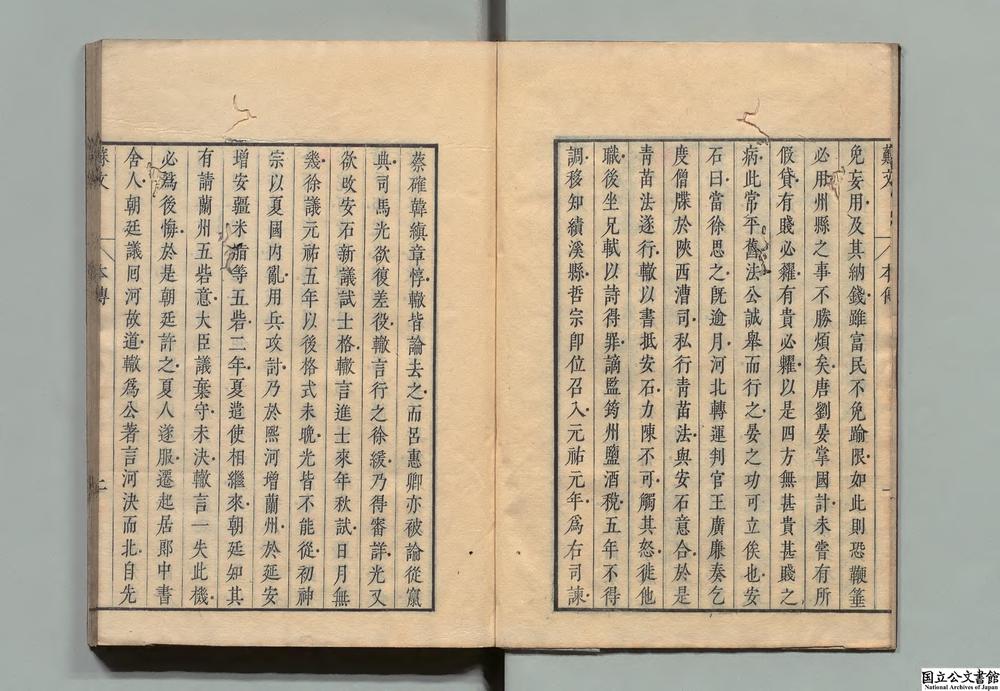 免妄用及其納錢雖富民不免踰限如此則恐鞭箠
必用州縣之事不勝煩矣唐劉晏掌國計未嘗有所
假貸有賤必糴有貴必糶以是四方無甚貴甚賤之
病此常平舊法公誠舉而行之晏之功可立俟也安
石曰當徐思之既逾月河北轉運判官王廣廉奏乞
度僧牒於陝西漕司私行青苗法與安石意合於是
青苗法遂行轍以書抵安石力陳不可觸其怒徙他
職後坐兄軾以詩得罪謫監筠州鹽酒稅五年不得
調移知績溪縣哲宗卽位召入元祐元年為右司諫
蔡確韓縝章惇轍皆論去之而呂惠卿亦被論從竄
典司馬光欲復差役轍言行之徐緩乃得審詳光又
欲改安石新議試士格轍言進士來年秋試日月無
幾徐議元祐五年以後格式未晚光皆不能從初神
宗以夏國內亂用兵攻討乃於熙河增蘭州於延安
增安疆米脂等五砦二年夏遣使相繼來朝廷知其
有請蘭州五砦意大臣議棄守未決轍言一失此機
必為後悔於是朝廷許之夏人遂服遷起居郎中書
舍人朝廷議囘河故道轍為公著言河決而北自先
蘇文
本傳
二
国立公文書館
National Archives of Japan